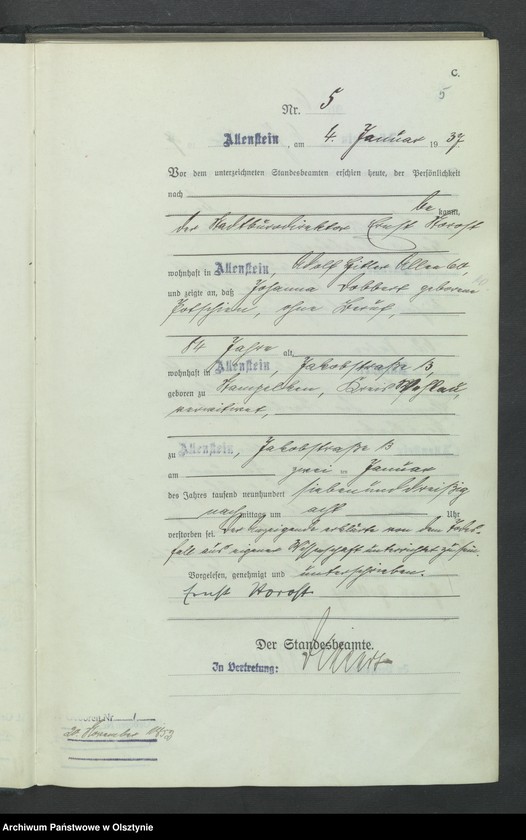 C.
5
Nr. 5
Allenstein, am 4. Januar 1937
Vor dem unterzeichneten Standesbeamten erschien heute, der Persönlichkeit
nach
be kannt,
der Stadtbürodirektor Ernst Horost
wohnhaft in Allenstein, Adolf Hitler Allee 60,
und zeigte an, daß Johanna Dobbert geborene
ohne Beruf,
84 Jahre alt,
wohnhaft in Allenstein, Jakobstraße 13,
geboren zu Kreis Wehlau,
verwitwet,
zu Allenstein, Jakobstraße 13
am zwei ten Januar
des Jahres tausend neunhundert siebenunddreißig
nach mittags um acht Uhr
verstorben sei. Der Anzeigende erklärte von dem Todes-
fall aus eigener Wissenschaft unterrichtet zu sein.
Vorgelesen, genehmigt und unterschrieben.
Ernst Horost
Der Standesbeamte.
In Vertretung:
Geboren Nr.
20. November 1852
Archiwum Państwowe w Olsztynie